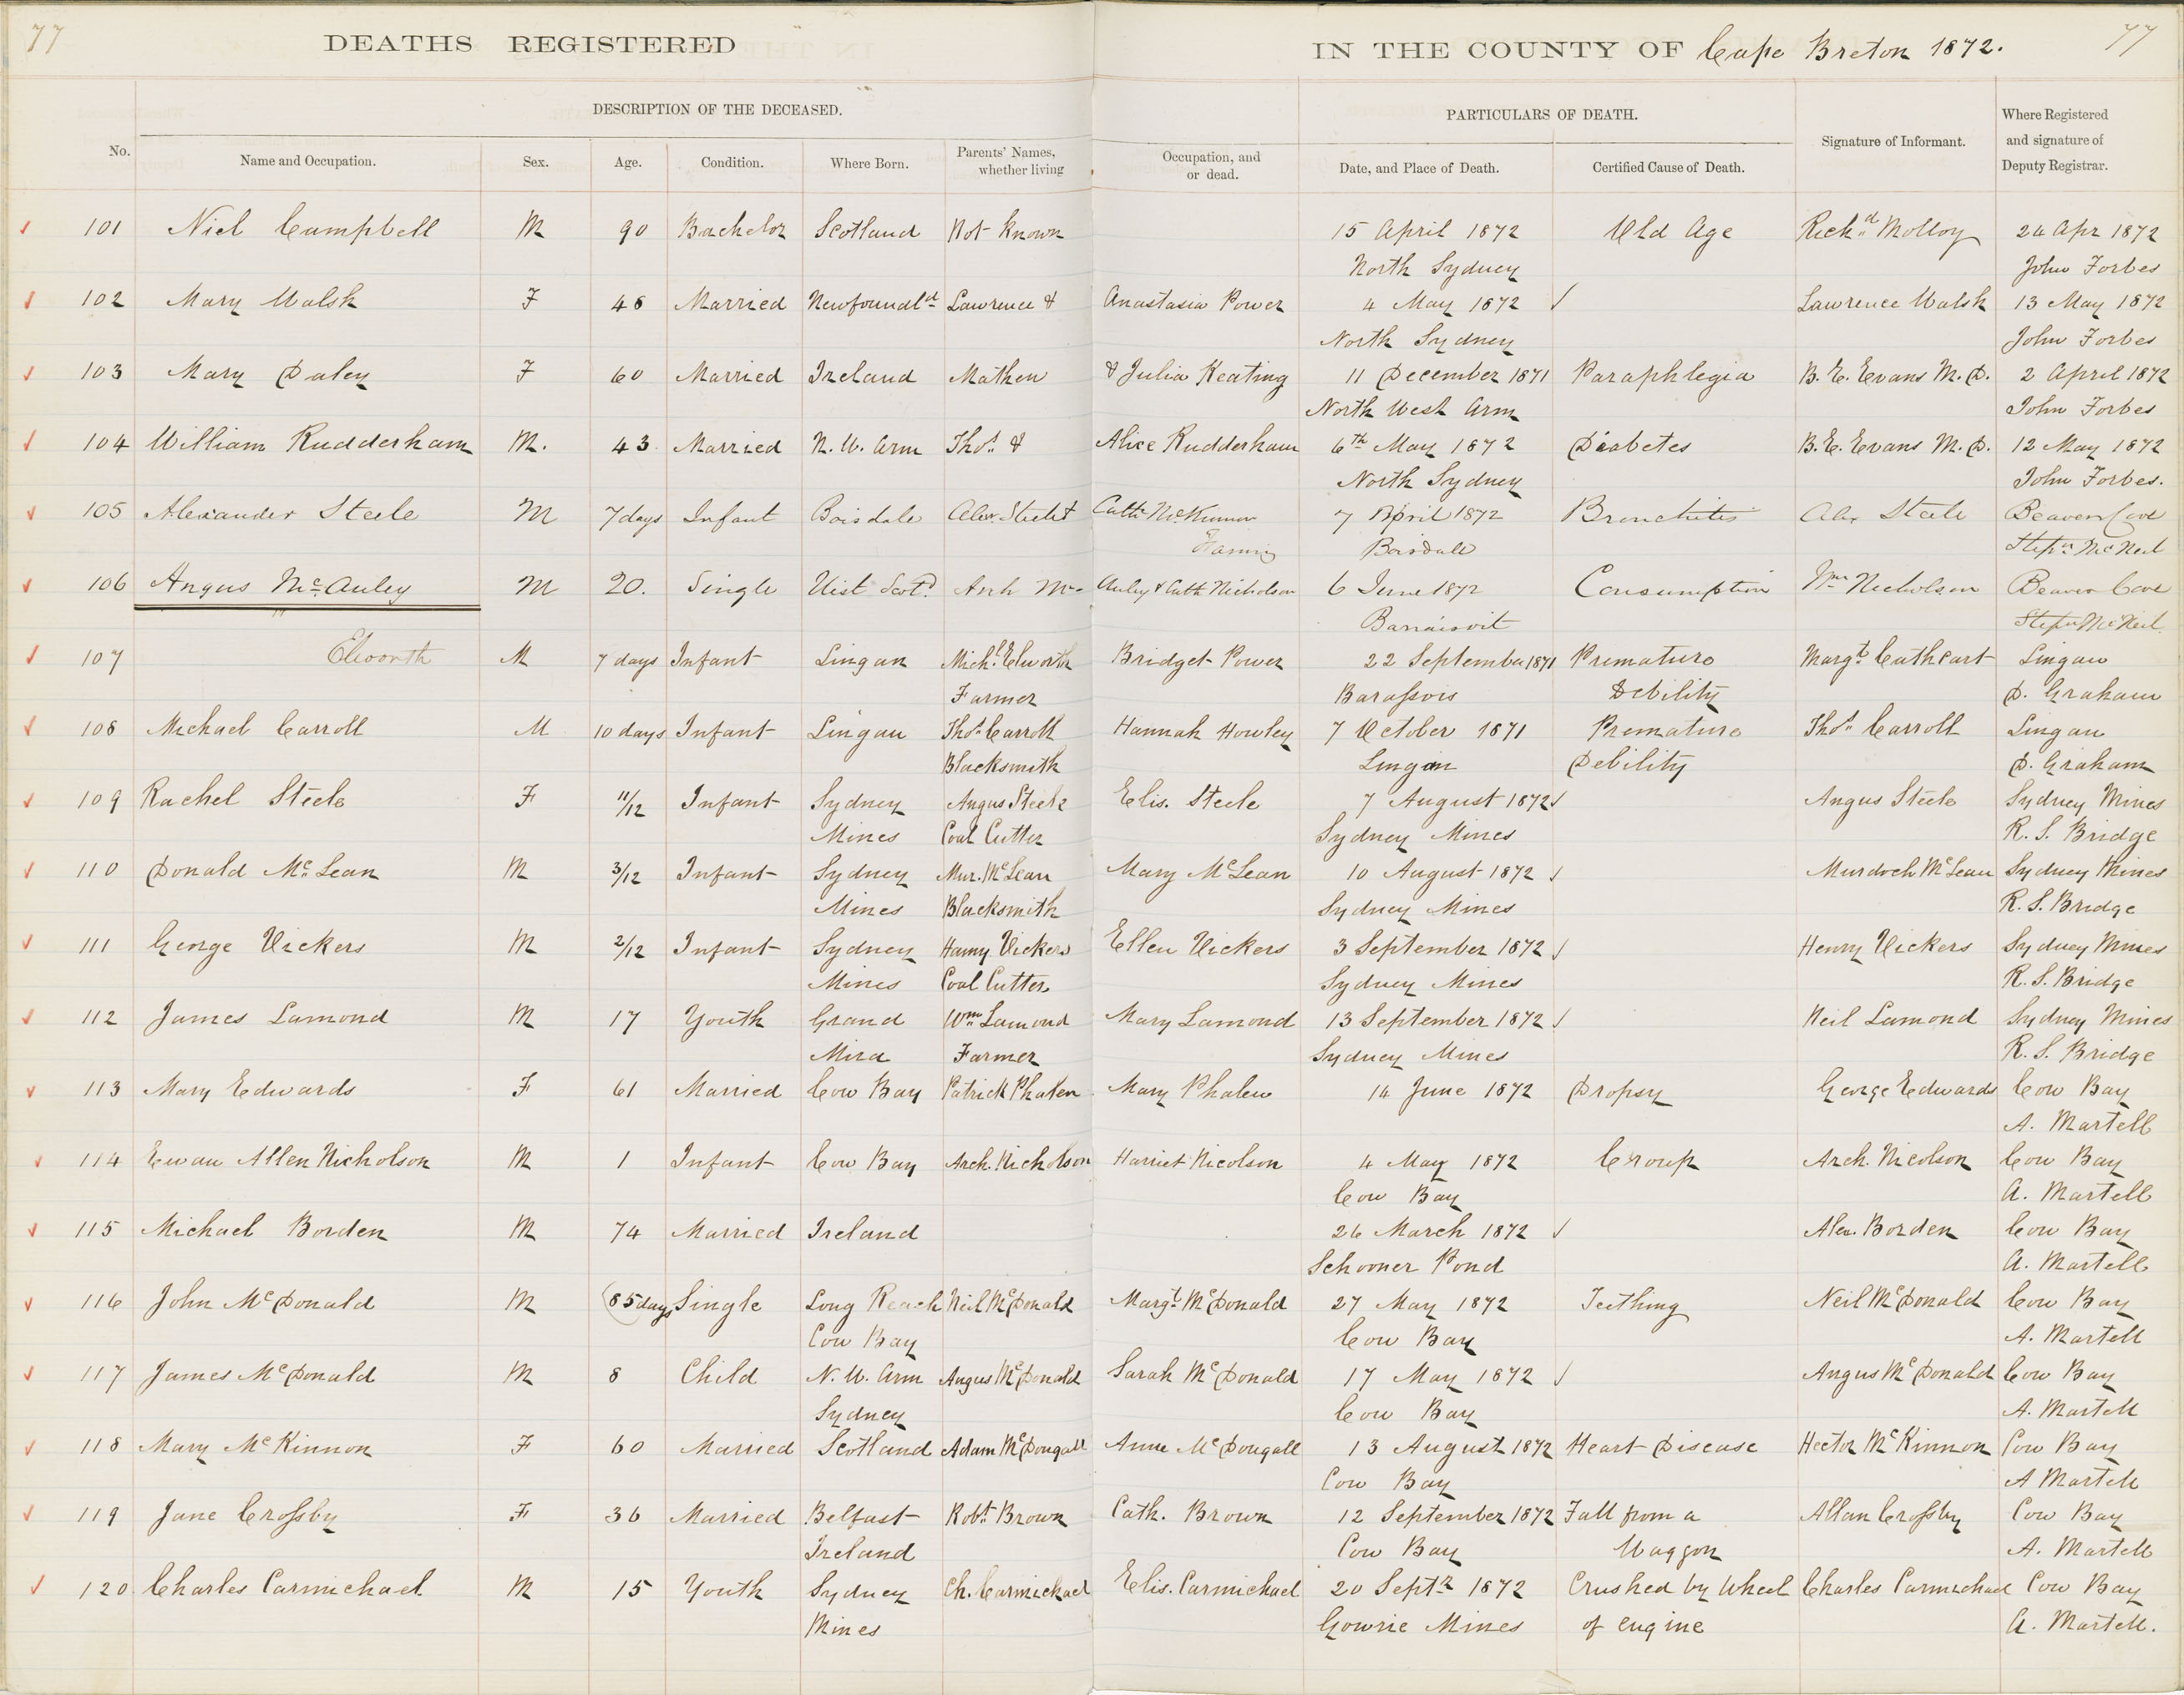 77
DEATHS REGISTERED IN THE COUNTY OF Cape Breton 1872.
77
DESCRIPTION OF THE DECEASED. PARTICULARS OF DEATH.
No. Name and Occupation. Sex. Age. Condition. Where Born. Parents' Names, whether living Occupation, and or dead. Date, and Place of Death. Certified Cause of Death. Signature of Informant. Where Registered and signature of Deputy Registrar.
101 Niel Campbell M 90 Bachelor Scotland Not Known 15 April 1872 Old Age Richd Molloy 24 Apr 1872
North Sydney John Forbes
102 Mary Walsh F 48 Married Newfoundld Lawrence & Anastasia Power 4 May 1872 ✓ Lawrence Walsh 13 May 1872
North Sydney John Forbes
103 Mary Daley F 60 Married Ireland Mathew & Julia Keating 11 December 1871 Paraphlegia B. E. Evans M. D. 2 April 1872
North West Arm John Forbes
104 William Rudderham M. 43 Married N. W. Arm Thos. & Alice Rudderham 6th May 1872 Diabetes B. E. Evans M. D. 12 May 1872
North Sydney John Forbes.
105 Alexander Steele M 7 days Infant Boisdale Alexr Steele & Cath McKinnon 7 April 1872 Bronchitis Alex Steele Beaver Cove
Boisdale Stepn McNeil
106 Angus Mc Auley M 20. Single Uist Scotd. Arch Mc Auley & Cath Nicholson 6 June 1872 Consumption Wm Nicholson Beaver Cove
Stepn McNeil
107 Elworth M 7 days Infant Lingan Michl Elworth Bridget Power 22 September 1871 Premature Margt Cathcart Lingan
Farmer Barassois Debility D. Graham
108 Michael Carroll M 10 days Infant Lingan Thos. Carroll Hannah Howley 7 October 1871 Premature Thos. Carroll Lingan
Blacksmith Lingan Debility D. Graham
109 Rachel Steele F 11/12 Infant Sydney Angus Steele Elis. Steele 7 August 1872 ✓ Angus Steele Sydney Mines
Mines Coal Cutter Sydney Mines R. S. Bridge
110 Donald Mc Lean M 3/12 Infant Sydney Mur. McLean Mary McLean 10 August 1872 ✓ Murdoch McLean Sydney Mines
Mines Blacksmith Sydney Mines R. S. Bridge
111 George Vickers M 2/12 Infant Sydney Henry Vickers Ellen Vickers 3 September 1872 ✓ Henry Vickers Sydney Mines
Mines Coal Cutter Sydney Mines R. S. Bridge
112 James Lamond M 17 Youth Grand Wm Lamond Mary Lamond 13 September 1872 ✓ Neil Lamond Sydney Mines
Mira Farmer Sydney Mines R. S. Bridge
113 Mary Edwards F 61 Married Cow Bay Patrick Phalen Mary Phalen 14 June 1872 Dropsy George Edwards Cow Bay
A. Martell
114 Ewan Allen Nicholson M 1 Infant Cow Bay Arch. Nicholson Harriet Nicolson 4 May 1872 Croup Arch. Nicolson Cow Bay
Cow Bay A. Martell
115 Michael Borden M 74 Married Ireland 26 March 1872 ✓ Alex. Borden Cow Bay
Schooner Pond A. Martell
116 John McDonald M (85 days Single Long Reach Neil McDonald Margt McDonald 27 May 1872 Teething Neil McDonald Cow Bay
Cow Bay Cow Bay A. Martell
117 James McDonald M 8 Child N. W. Arm Angus McDonald Sarah McDonald 17 May 1872 ✓ Angus McDonald Cow Bay
Sydney Cow Bay A. Martell
118 Mary McKinnon F 60 Married Scotland Adam McDougall Anne McDougall 13 August 1872 Heart Disease Hector McKinnon Cow Bay
Cow Bay A Martell
119 Jane Crossby F 36 Married Belfast Robt. Brown Cath. Brown 12 September 1872 Fall from a Allan Crossby Cow Bay
Ireland Cow Bay Waggon A. Martell
120 Charles Carmichael M 15 Youth Sydney Ch. Carmichael Elis. Carmichael 20 Septr 1872 Crushed by Wheel Charles Carmichael Cow Bay
Mines Gowrie Mines of engine A. Martell.